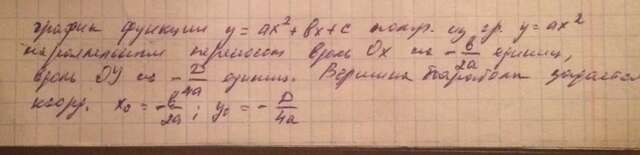 график функции y = ax² + bx + c получ. из гр. y = ax²
параллельным переносом вдоль Ox на -b/2a единиц,
вдоль Oy на -D/4a единиц. Вершина параболы задается
коорд. x₀ = -b/2a ; y₀ = -D/4a